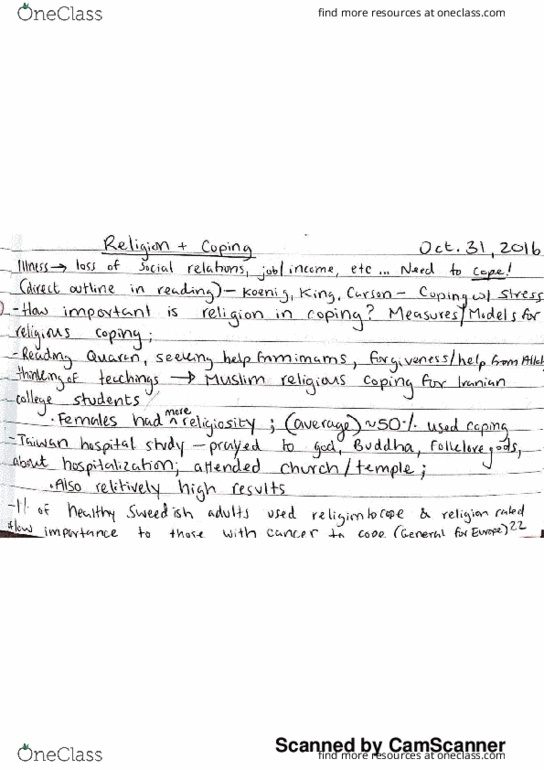 OneClass
find more resources at oneclass.com
Religion + Coping Oct. 31, 2016
Illness → loss of social relations, job/income, etc ... Need to cope!
(direct outline in reading) - Koenig, King, Carson - Coping w/ stress
- How important is religion in coping? Measures/Models for
religious coping;
- Reading Quaren, seeking help from imams, forgiveness/help from Allah
thinking of teachings → Muslim religious coping for Iranian
college students
· Females had more religiosity ; (average) ~50% used coping
- Taiwan hospital study - prayed to god, Buddha, folklore gods,
about hospitalization; attended church/temple;
· Also relitively high results
- 1% of healthy Sweedish adults used religion to cope & religion rated
low importance to those with cancer to cope (General for Europe) 22
Scanned by CamScanner
OneClass
find more resources at oneclass.com